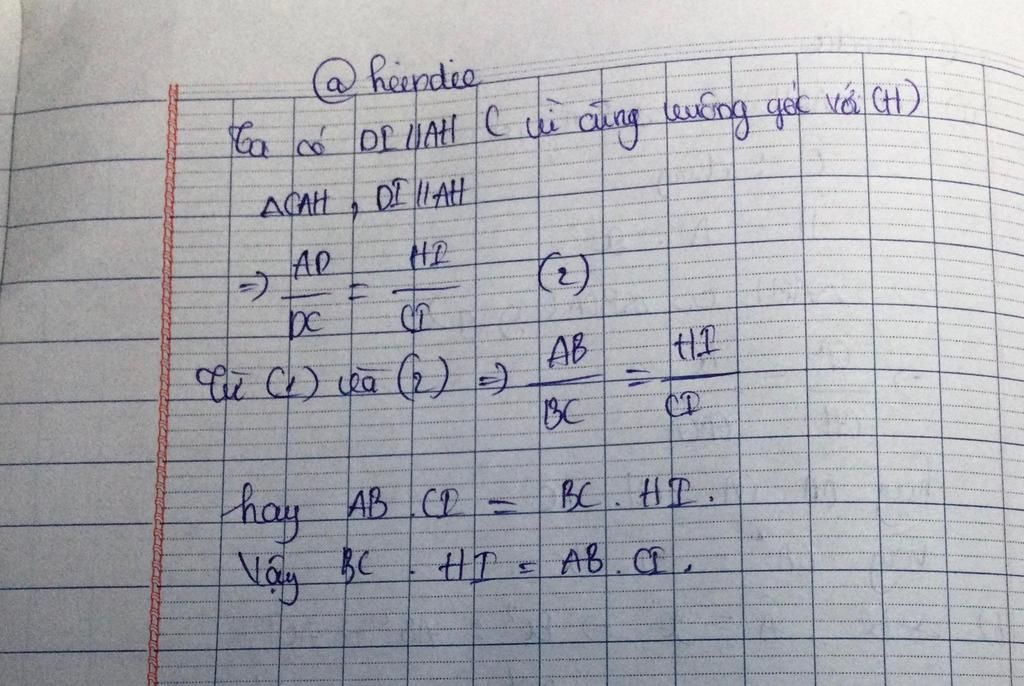 @ heendee
Ta có DI // AH ( vì cùng vuông góc với CH)
△CAH , DI // AH
=> AD/DC = HI/CI (2)
Từ (1) và (2) => AB/BC = HI/CI
hay AB . CI = BC . HI .
Vậy BC . HI = AB . CI .